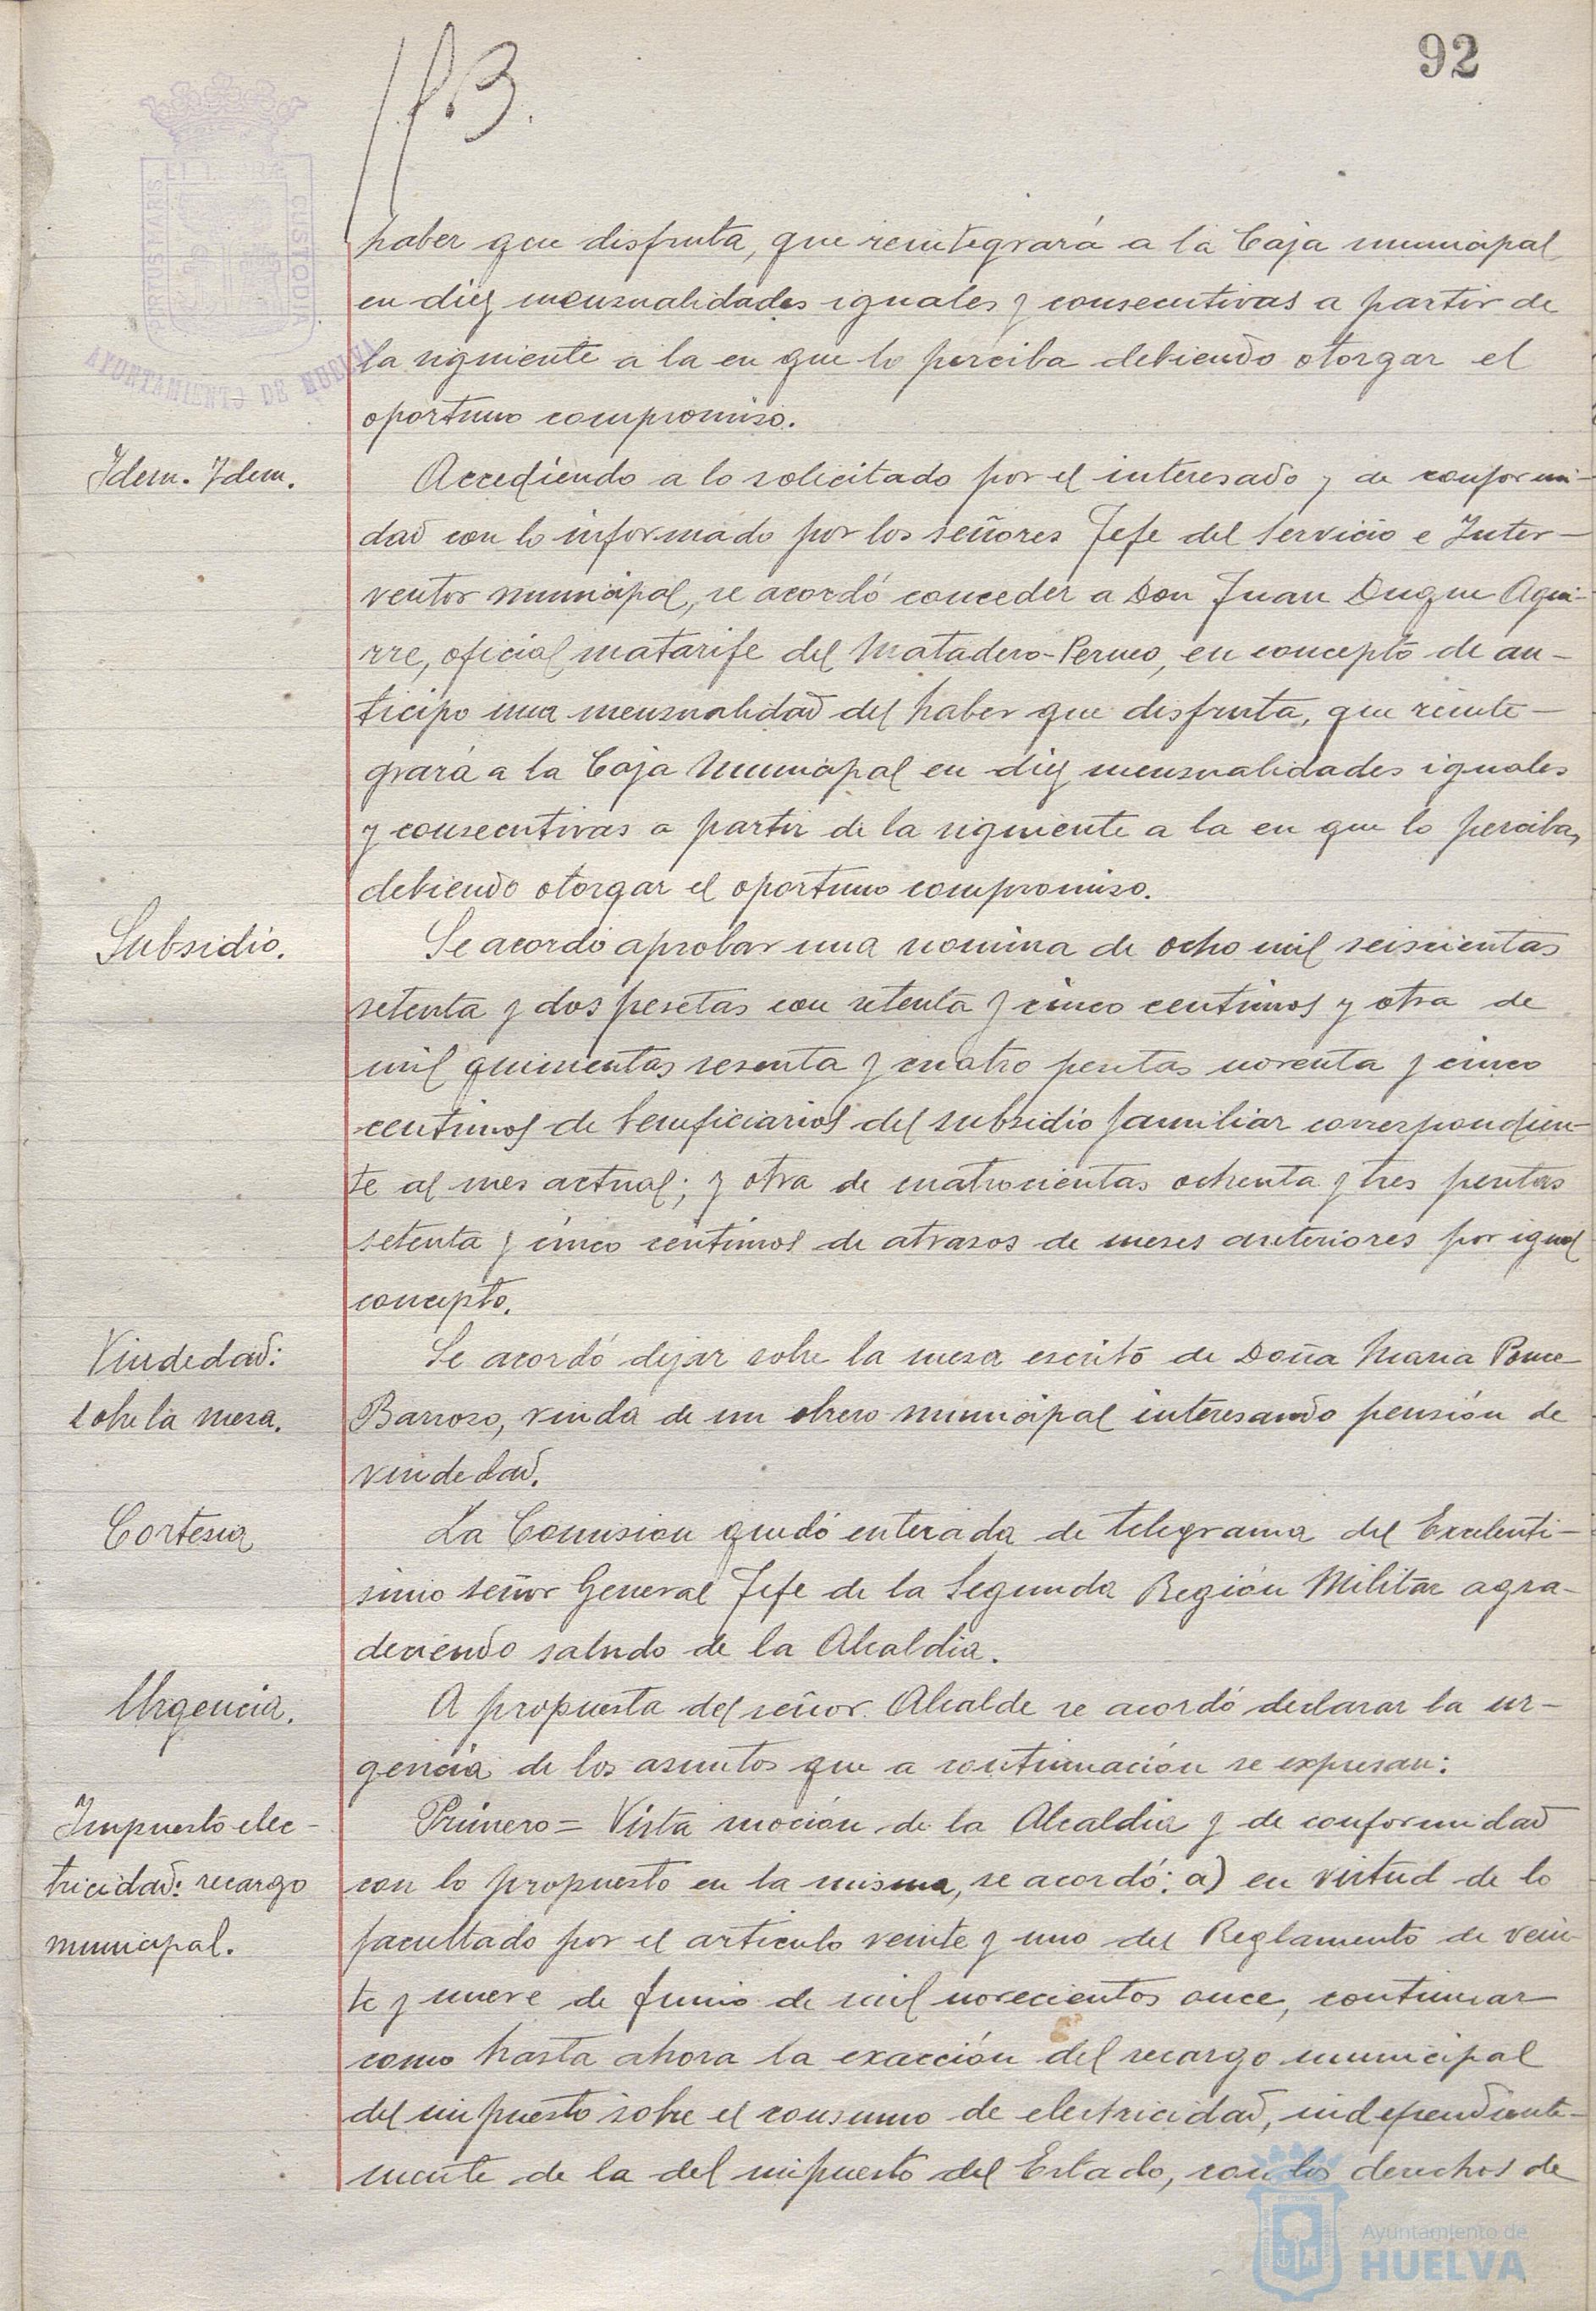 92
haber que disfruta, que reintegrará a la Caja municipal
en diez mensualidades iguales y consecutivas a partir de
la siguiente a la en que lo perciba debiendo otorgar el
oportuno compromiso.
PORTUS MARIS ET TERRAE CUSTODIA
AYUNTAMIENTO DE HUELVA
Idem. Idem.
Accediendo a lo solicitado por el interesado y de conformi-
dad con lo informado por los señores Jefe del Servicio e Inter-
ventor municipal, se acordó conceder a Don Juan Duque Agui-
rre, oficial matarife del Matadero-Perneo, en concepto de an-
ticipo una mensualidad del haber que disfruta, que reinte-
grará a la Caja Municipal en diez mensualidades iguales
y consecutivas a partir de la siguiente a la en que lo perciba,
debiendo otorgar el oportuno compromiso.
Subsidio.
Se acordó aprobar una nomina de ocho mil seiscientas
setenta y dos pesetas con setenta y cinco centimos y otra de
mil quinientas sesenta y cuatro pesetas noventa y cinco
centimos de beneficiarios del subsidio familiar correspondien-
te al mes actual; y otra de cuatrocientas ochenta y tres pesetas
setenta y cinco centimos de atrasos de meses anteriores por igual
concepto.
Viudedad:
sobre la mesa.
Se acordó dejar sobre la mesa escrito de Doña Maria Ponce
Barroso, viuda de un obrero municipal interesando pensión de
viudedad.
Cortesia
La Comision quedó enterada de telegrama del Excelenti-
simo señor General Jefe de la Segunda Región Militar agra-
deciendo saludo de la Alcaldia.
Urgencia.
A propuesta del señor Alcalde se acordó declarar la ur-
gencia de los asuntos que a continuación se expresan:
Impuesto elec-
tricidad: recargo
municipal.
Primero= Vista moción de la Alcaldia y de conformidad
con lo propuesto en la misma, se acordó: a) en virtud de lo
facultado por el articulo veinte y uno del Reglamento de vein-
te y nueve de Junio de mil novecientos once, continuar
como hasta ahora la exacción del recargo municipal
del impuesto sobre el consumo de electricidad, independiente-
mente de la del impuesto del Estado, con los derechos de
Ayuntamiento de
HUELVA